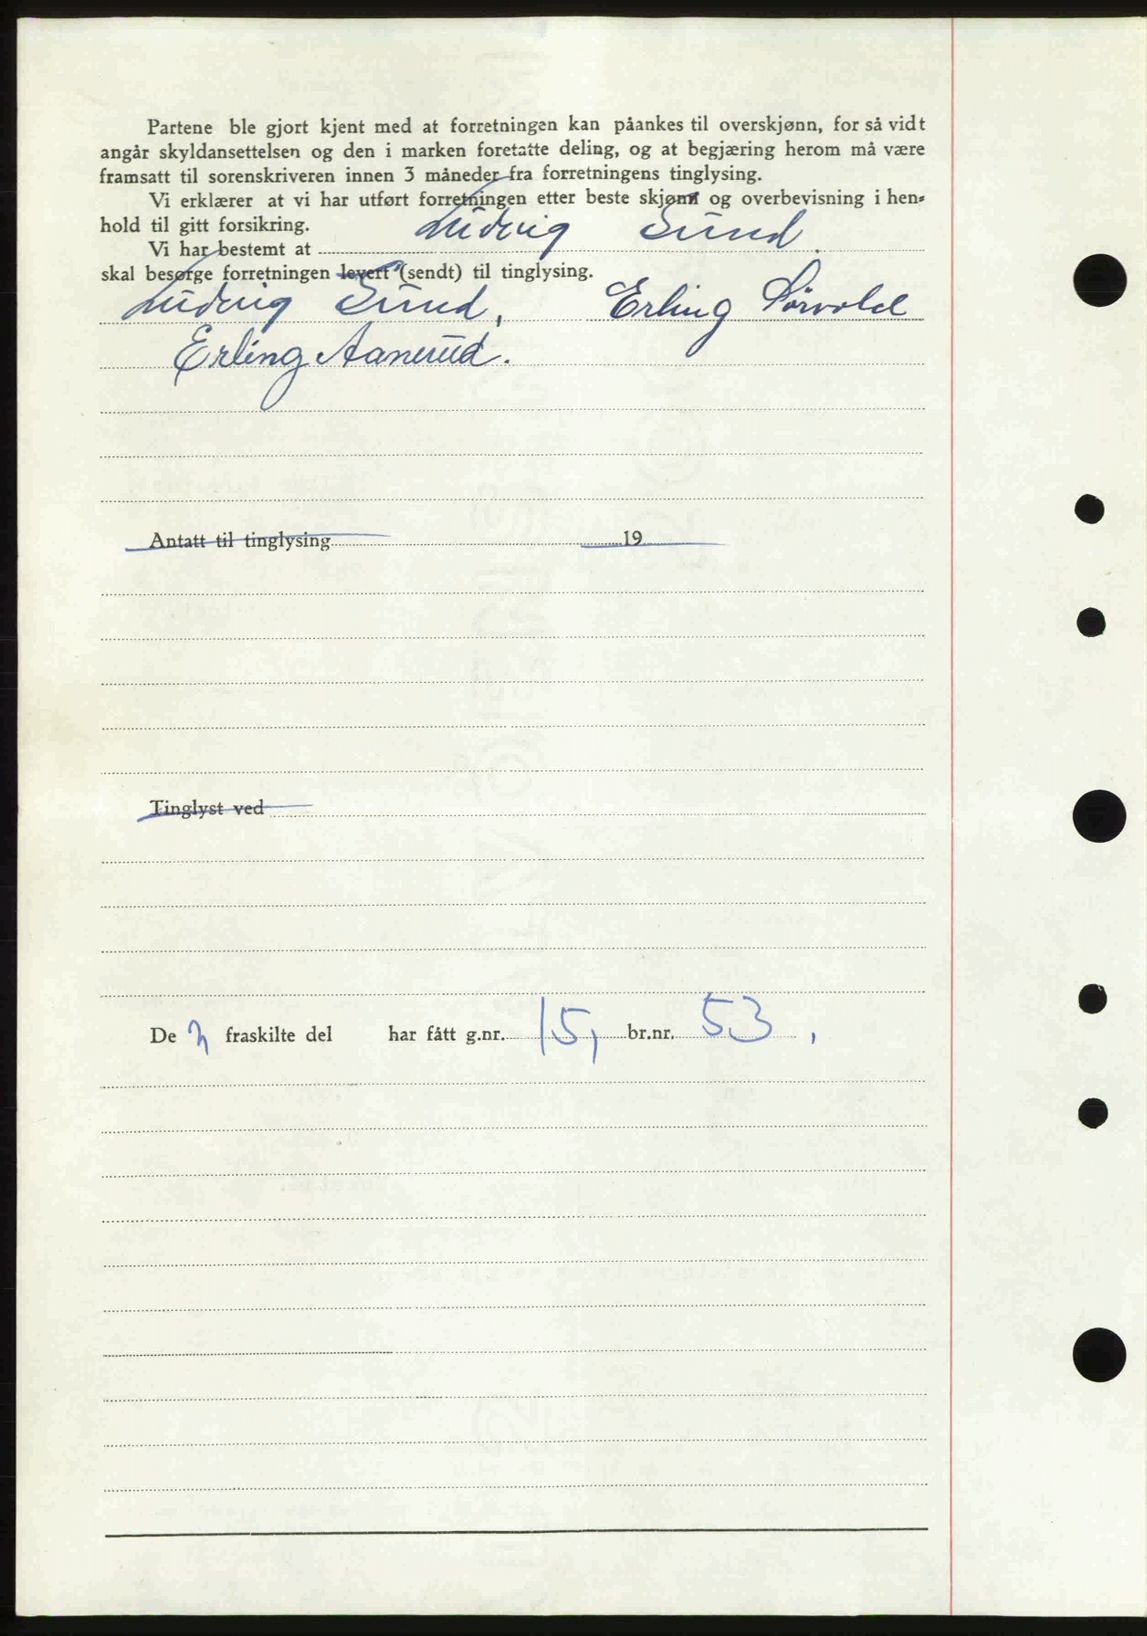 Partene ble gjort kjent med at forretningen kan påankes til overskjønn, for så vidt
angår skyldansettelsen og den i marken foretatte deling, og at begjæring herom må være
framsatt til sorenskriveren innen 3 måneder fra forretningens tinglysing.
Vi erklærer at vi har utført forretningen etter beste skjønn og overbevisning i hen-
hold til gitt forsikring.
Vi har bestemt at Ludvig Sund.
skal besørge forretningen levert (sendt) til tinglysing.
Ludvig Sund, Erling Sørvold
Erling Aanerud.
Antatt til tinglysing 19
Tinglyst ved
De n fraskilte del har fått g.nr. 15, br.nr. 53.